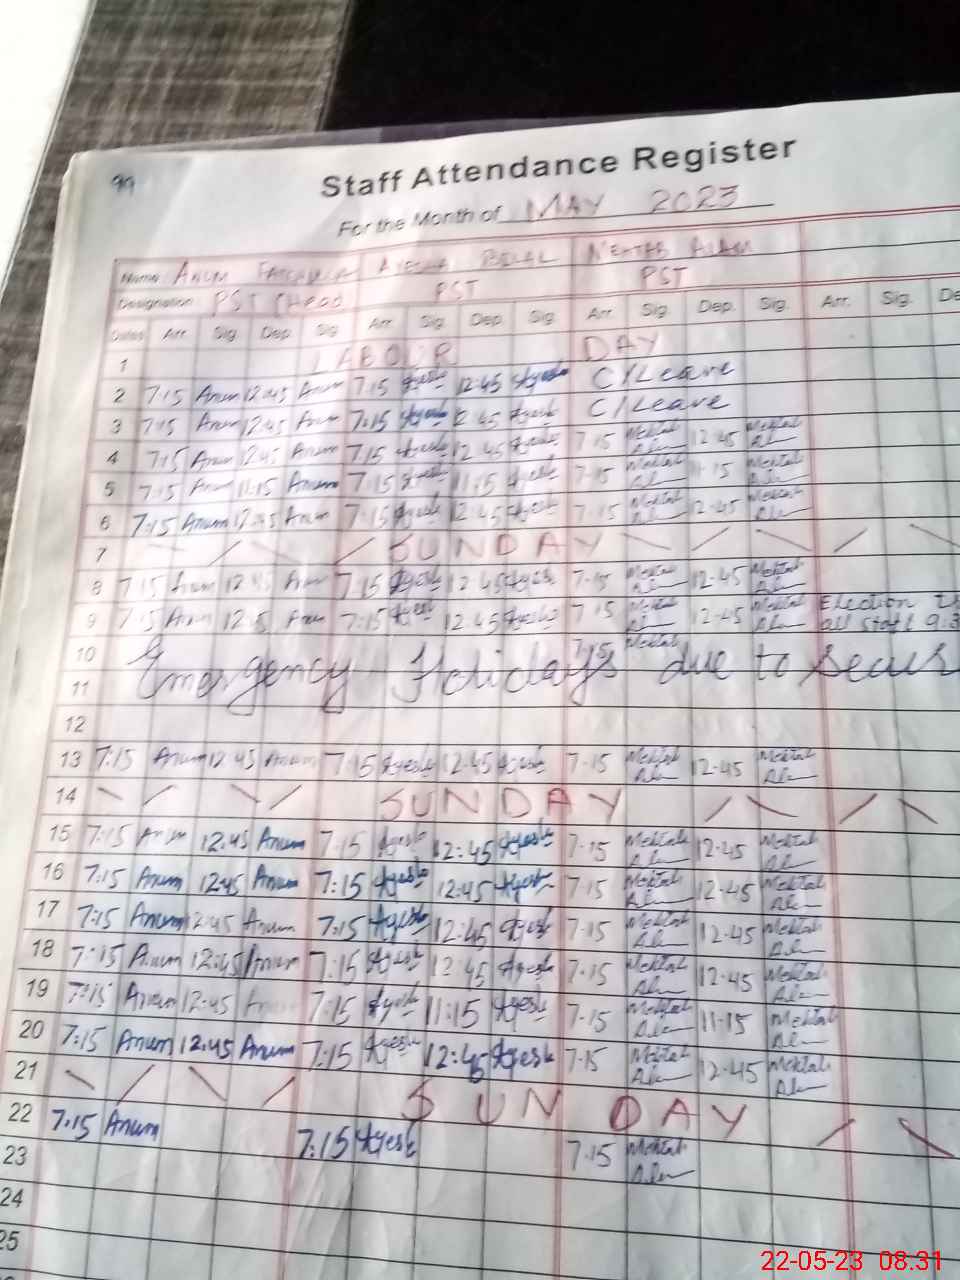 99
Staff Attendance Register
For the Month of MAY 2023
Name Anum AYESHA BILAL MEHTAB ALAM
Designation PST (Head PST PST
Dates Arr. Sig. Dep. Sig. Arr. Sig. Dep. Sig. Arr. Sig. Dep. Sig. Arr. Sig. De
1 LABOUR DAY
2 7:15 Anum 12:45 Anum 7:15 Ayesh 12:45 Ayesh C/Leave
3 7:15 Anum 12:45 Anum 7:15 Ayesh 12:45 Ayesh C/Leave
4 7:15 Anum 12:45 Anum 7:15 Ayesh 12:45 Ayesh 7-15 Mehtab Alam 12-45 Mehtab Alam
5 7:15 Anum 11:15 Anum 7:15 Ayesh 11:15 Ayesh 7-15 Mehtab Alam 11-15 Mehtab Alam
6 7:15 Anum 12:45 Anum 7:15 Ayesh 12:45 Ayesh 7-15 Mehtab Alam 12-45 Mehtab Alam
7 SUNDAY
8 7:15 Anum 12:45 Anum 7:15 Ayesh 12:45 Ayesh 7-15 Mehtab Alam 12-45 Mehtab Alam
9 7:15 Anum 12:5 Anum 7:15 Ayesh 12:45 Ayesh 7-15 Mehtab Alam 12-45 Mehtab Alam Election
all staff 9:3
10 7:15 Mehtab
Emergency Holidays due to Secur
11
12
13 7:15 Anum 12:45 Anum 7:15 Ayesh 12:45 Ayesh 7-15 Mehtab Alam 12-45 Mehtab Alam
14 SUNDAY
15 7:15 Anum 12:45 Anum 7:15 Ayesh 12:45 Ayesh 7-15 Mehtab Alam 12-45 Mehtab Alam
16 7:15 Anum 12:45 Anum 7:15 Ayesh 12:45 Ayesh 7-15 Mehtab Alam 12-45 Mehtab Alam
17 7:15 Anum 12:45 Anum 7:15 Ayesh 12:45 Ayesh 7-15 Mehtab Alam 12-45 Mehtab Alam
18 7:15 Anum 12:45 Anum 7:15 Ayesh 12:45 Ayesh 7-15 Mehtab Alam 12-45 Mehtab Alam
19 7:15 Anum 12:45 Anum 7:15 Ayesh 11:15 Ayesh 7-15 Mehtab Alam 11-15 Mehtab Alam
20 7:15 Anum 12:45 Anum 7:15 Ayesh 12:45 Ayesh 7-15 Mehtab Alam 12-45 Mehtab Alam
21 SUNDAY
22 7:15 Anum 7:15 Ayesh 7-15 Mehtab Alam
23
24
25
22-05-23 08.31